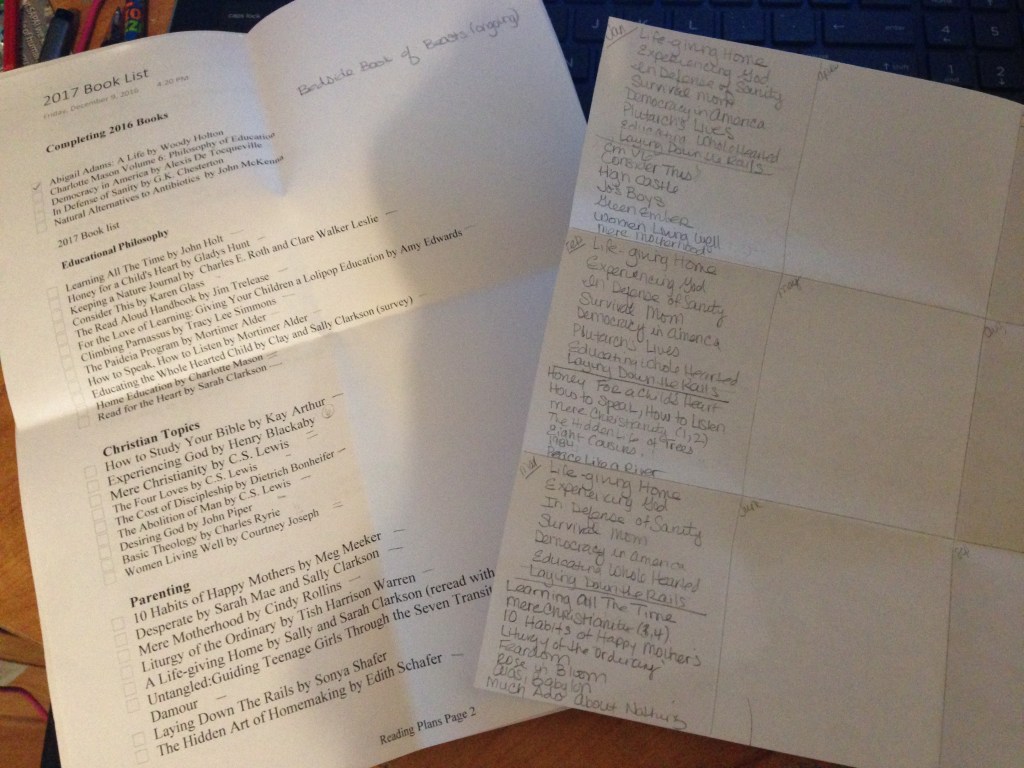 2017 Book List
Friday, December 9, 2016 4:20 PM
Bedside Book of Beasts (ongoing)
Completing 2016 Books
Abigail Adams: A Life by Woody Holton
Charlotte Mason Volume 6: Philosophy of Education
Democracy in America by Alexis De Tocqueville
In Defense of Sanity by G.K. Chesterton
Natural Alternatives to Antibiotics by John McKenna
2017 Book list
Educational Philosophy
Learning All The Time by John Holt
Honey for a Child's Heart by Gladys Hunt
Keeping a Nature Journal by Charles E. Roth and Clare Walker Leslie
Consider This by Karen Glass
The Read Aloud Handbook by Jim Trelease
For the Love of Learning: Giving Your Children a Lolipop Education by Amy Edwards
Climbing Parnassus by Tracy Lee Simmons
The Paideia Program by Mortimer Alder
How to Speak, How to Listen by Mortimer Alder
Educating the Whole Hearted Child by Clay and Sally Clarkson (survey)
Home Education by Charlotte Mason
Read for the Heart by Sarah Clarkson
Christian Topics
How to Study Your Bible by Kay Arthur
Experiencing God by Henry Blackaby
Mere Christianity by C.S. Lewis
The Four Loves by C.S. Lewis
The Cost of Discipleship by Dietrich Bonheifer
The Abolition of Man by C.S. Lewis
Desiring God by John Piper
Basic Theology by Charles Ryrie
Women Living Well by Courtney Joseph
Parenting
10 Habits of Happy Mothers by Meg Mecker
Desperate by Sarah Mae and Sally Clarkson
Mere Motherhood by Cindy Rollins
Liturgy of the Ordinary by Tish Harrison Warren
A Life-giving Home by Sally and Sarah Clarkson (reread with
Untangled:Guiding Teenage Girls Through the Seven Transit
Damour
Laying Down The Rails by Sonya Shafer
The Hidden Art of Homemaking by Edith Schafer
Reading Plans Page 2
Jan
Life-giving Home
Experiencing God
In Defense of Sanity
Survival Mom
Democracy in America
Plutarch's Lives
Educating Whole Hearted
Laying Down the Rails
Cm V6
Consider This
High Castle
Jo's Boys
Green Ember
Women Living Well
Mere Motherhood
Feb
Life-giving Home
Experiencing God
In Defense of Sanity
Survival Mom
Democracy in America
Plutarch's Lives
Educating Whole Hearted
Laying Down the Rails
Honey For a Child's Heart
How to Speak, How to Listen
Mere Christianity (1,2)
The Hidden Life of Trees
Eight Cousins
Peace Like a River
Life-giving Home
Experiencing God
In Defense of Sanity
Survival Mom
Democracy in America
Educating Whole Hearted
Laying Down the Rails
Learning All The Time
Mere Christianity (3,4)
10 Habits of Happy Mother's
Liturgy of the Ordinary
Feardom
Rose in Bloom
Alas, Babylon
Much Ado About Nothing
June
caps lock